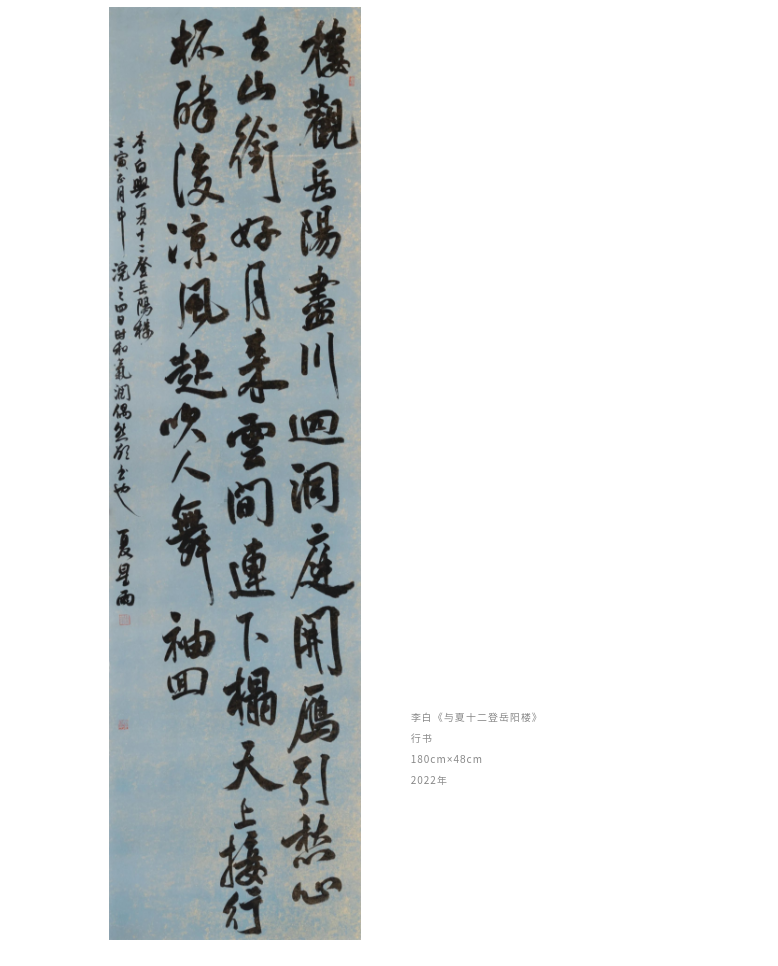 樓觀岳陽盡川迥洞庭開鴈引愁心
去山銜好月來雲間連下榻天上接行
杯醉後涼風起吹人舞袖回
李白與夏十二登岳陽樓
壬寅正月中浣之四日時和氣潤偶然欲書也 夏星雨
李白《与夏十二登岳阳楼》
行书
180cm×48cm
2022年